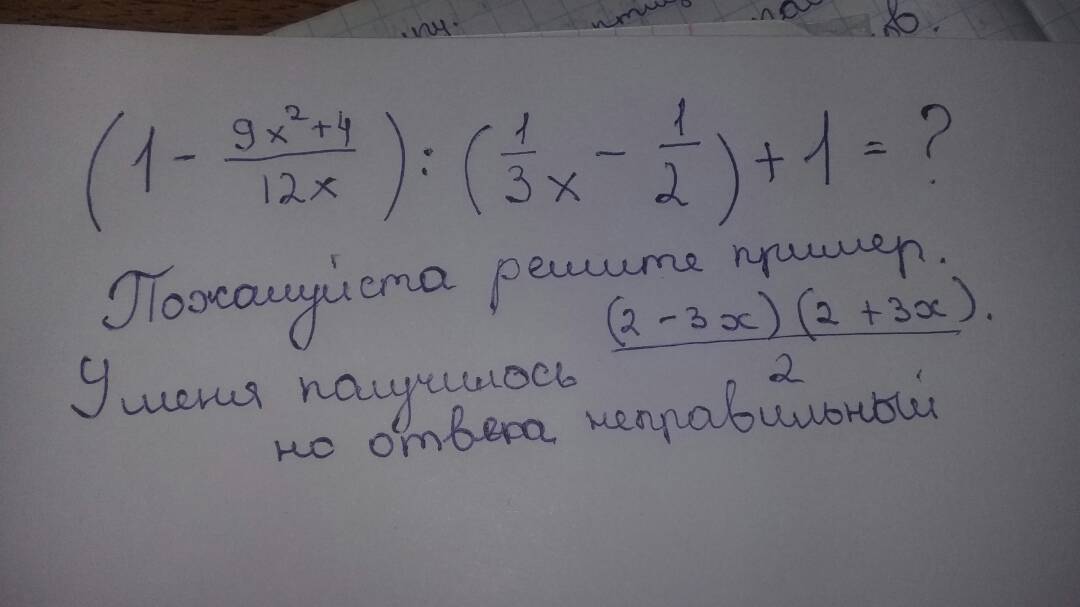 .пч.
(1 - \frac{9x^2+4}{12x}) : (\frac{1}{3x} - \frac{1}{2}) + 1 = ?
Пожалуйста решите пример.
У меня получилось \frac{(2-3x)(2+3x)}{2}.
но ответ неправильный